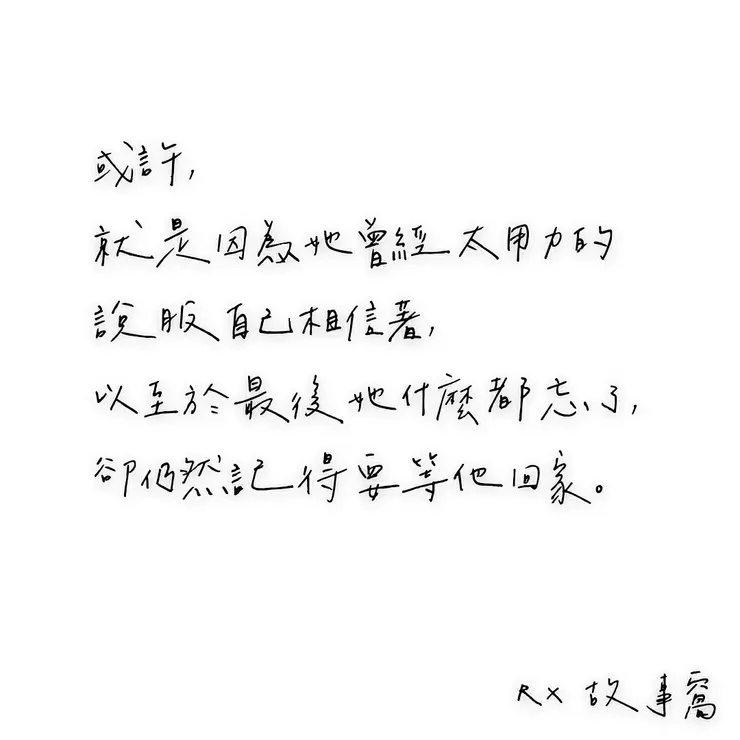 或許,
就是因為她曾經太用力的
說服自己相信著,
以至於最後她什麼都忘了,
卻仍然記得要等他回家。
RX 故事窩